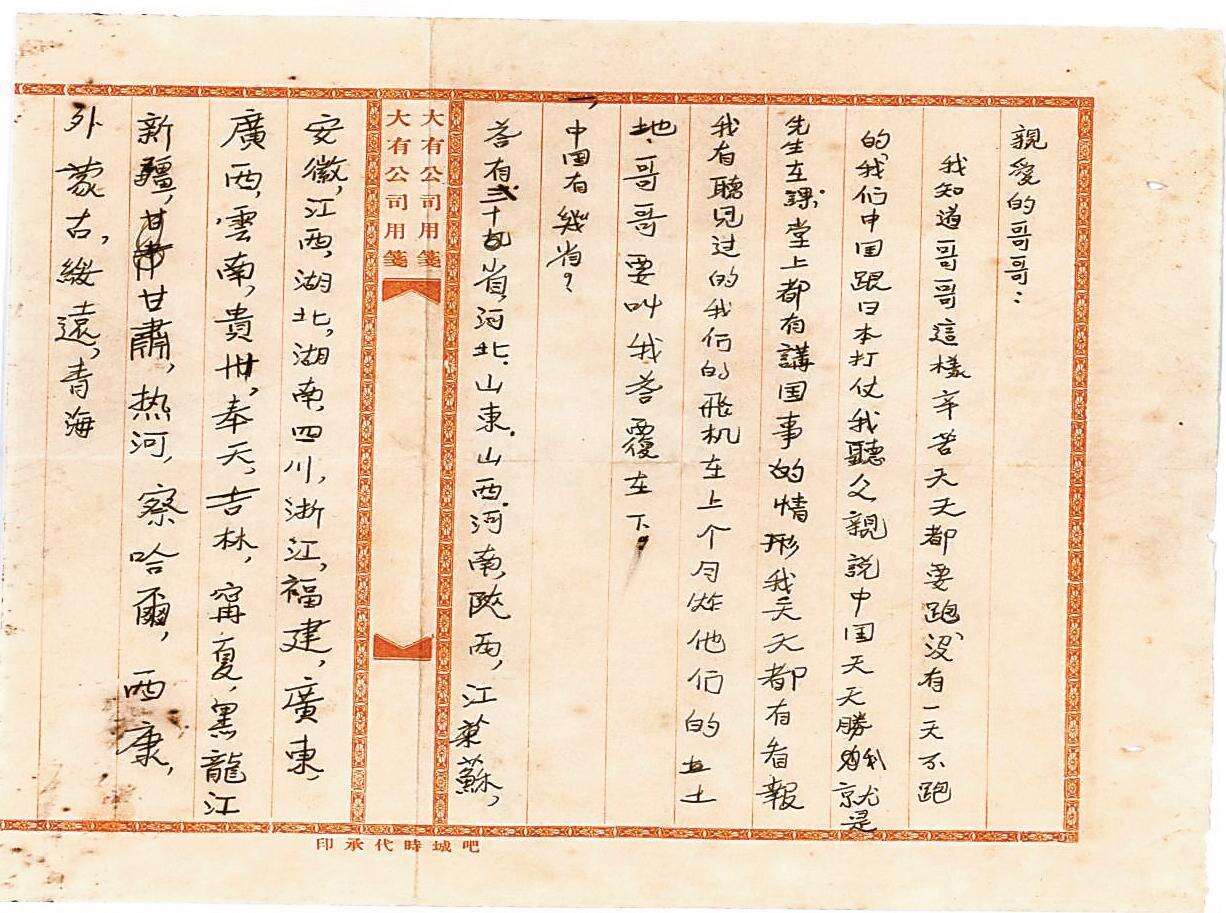 親愛的哥哥：
我知道哥哥這樣辛苦天天都要跑没有一天不跑
的我们中国跟日本打仗我聽父親説中国天天勝我就是
先生在課堂上都有講国事的情形我天天都有看報
我有聽見过的我们的飛机在上个月炸他们的土
地.哥哥要叫我荅覆在下。
一,中国有幾省？
荅有弍十九省,河北.山東.山西.河南,陝西,江蘇,
大有公司用箋
大有公司用箋
安徽,江西,湖北,湖南,四川,浙江,福建,廣東,
廣西,雲南,貴州,奉天,吉林,甯夏,黑龍江
新疆,甘肅,热河,察哈爾,西康,
外蒙古,綏遠,青海
吧城時代承印